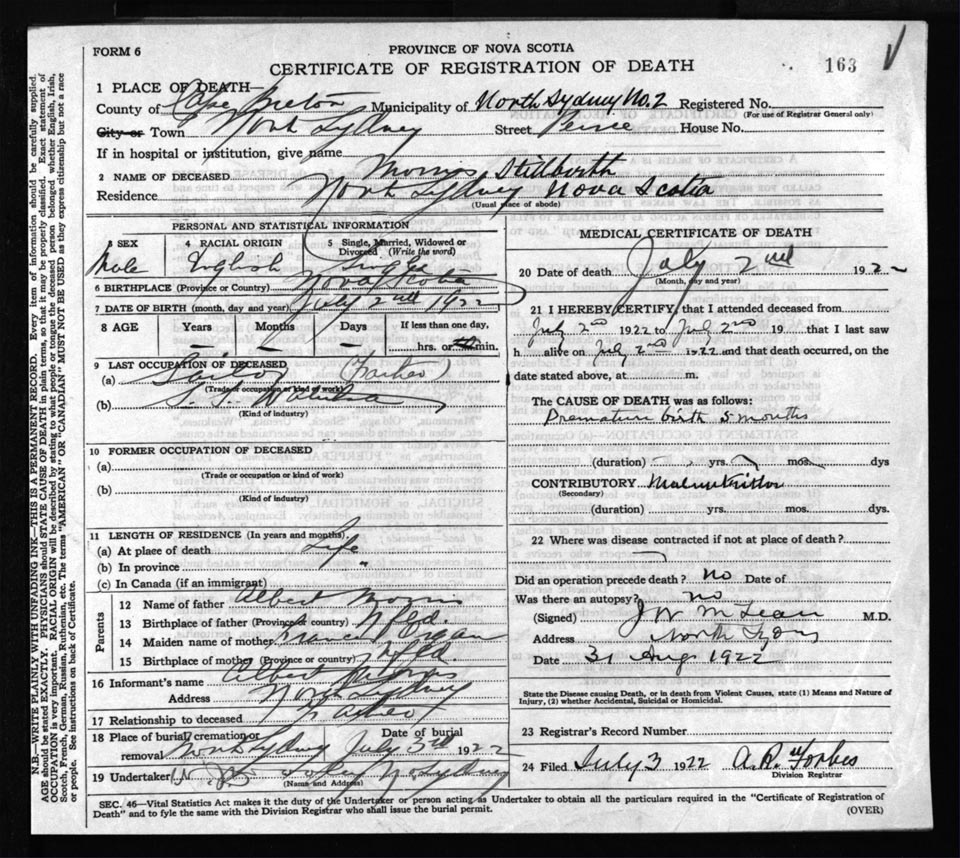 FORM 6
PROVINCE OF NOVA SCOTIA
CERTIFICATE OF REGISTRATION OF DEATH
163
1 PLACE OF DEATH—
County of Cape Breton Municipality of North Sydney No. 2 Registered No.
(For use of Registrar General only)
City or Town North Sydney Street Peirce House No.
If in hospital or institution, give name
2 NAME OF DECEASED Morris Stillbirth
Residence North Sydney Nova Scotia
(Usual place of abode)
PERSONAL AND STATISTICAL INFORMATION
3 SEX 4 RACIAL ORIGIN 5 Single, Married, Widowed or Divorced (Write the word)
Male English Single
6 BIRTHPLACE (Province or Country) Nova Scotia
7 DATE OF BIRTH (month, day and year) July 2nd 1922
8 AGE Years Months Days If less than one day,
— — — hrs. or min.
9 LAST OCCUPATION OF DECEASED
(a) Sailor (Father)
(Trade or occupation or kind of work)
(b)
(Kind of industry)
10 FORMER OCCUPATION OF DECEASED
(a)
(Trade or occupation or kind of work)
(b)
(Kind of industry)
11 LENGTH OF RESIDENCE (In years and months)
(a) At place of death Life
(b) In province "
(c) In Canada (if an immigrant)
Parents
12 Name of father Albert Morris
13 Birthplace of father (Province or country) Nfld.
14 Maiden name of mother
15 Birthplace of mother (Province or country) Nfld.
16 Informant's name Albert Morris
Address North Sydney
17 Relationship to deceased Father
18 Place of burial, cremation or removal Date of burial
North Sydney July 3rd 1922
19 Undertaker N. Sydney
(Name and Address)
MEDICAL CERTIFICATE OF DEATH
20 Date of death July 2nd 1922
(Month, day and year)
21 I HEREBY CERTIFY, that I attended deceased from
July 2nd 1922 to July 2nd 19 that I last saw
h alive on July 2nd 1922 and that death occurred, on the
date stated above, at m.
The CAUSE OF DEATH was as follows:
Premature birth 5 months
(duration) yrs. mos. dys
CONTRIBUTORY Malnutrition
(Secondary)
(duration) yrs. mos. dys.
22 Where was disease contracted if not at place of death?
Did an operation precede death? No Date of
Was there an autopsy? no
(Signed) J W McLean M.D.
Address North Sydney
Date 31 Aug 1922
State the Disease causing Death, or in death from Violent Causes, state (1) Means and Nature of Injury, (2) whether Accidental, Suicidal or Homicidal.
23 Registrar's Record Number
24 Filed July 3 1922 A. R. Forbes
Division Registrar
SEC. 46—Vital Statistics Act makes it the duty of the Undertaker or person acting as Undertaker to obtain all the particulars required in the "Certificate of Registration of
Death" and to fyle the same with the Division Registrar who shall issue the burial permit.
(OVER)
N.B.—WRITE PLAINLY WITH UNFADING INK—THIS IS A PERMANENT RECORD. Every item of information should be carefully supplied.
AGE should be stated EXACTLY. PHYSICIANS should STATE CAUSE OF DEATH in plain terms, so that it may be properly classified. Exact statement of
OCCUPATION is very important. RACIAL ORIGIN will be described by stating to what people or tongue the deceased person belonged whether English, Irish,
Scotch, French, German, Russian, Ruthenian, etc. The terms "AMERICAN" OR "CANADIAN" MUST NOT BE USED as they express citizenship but not a race
or people. See instructions on back of Certificate.